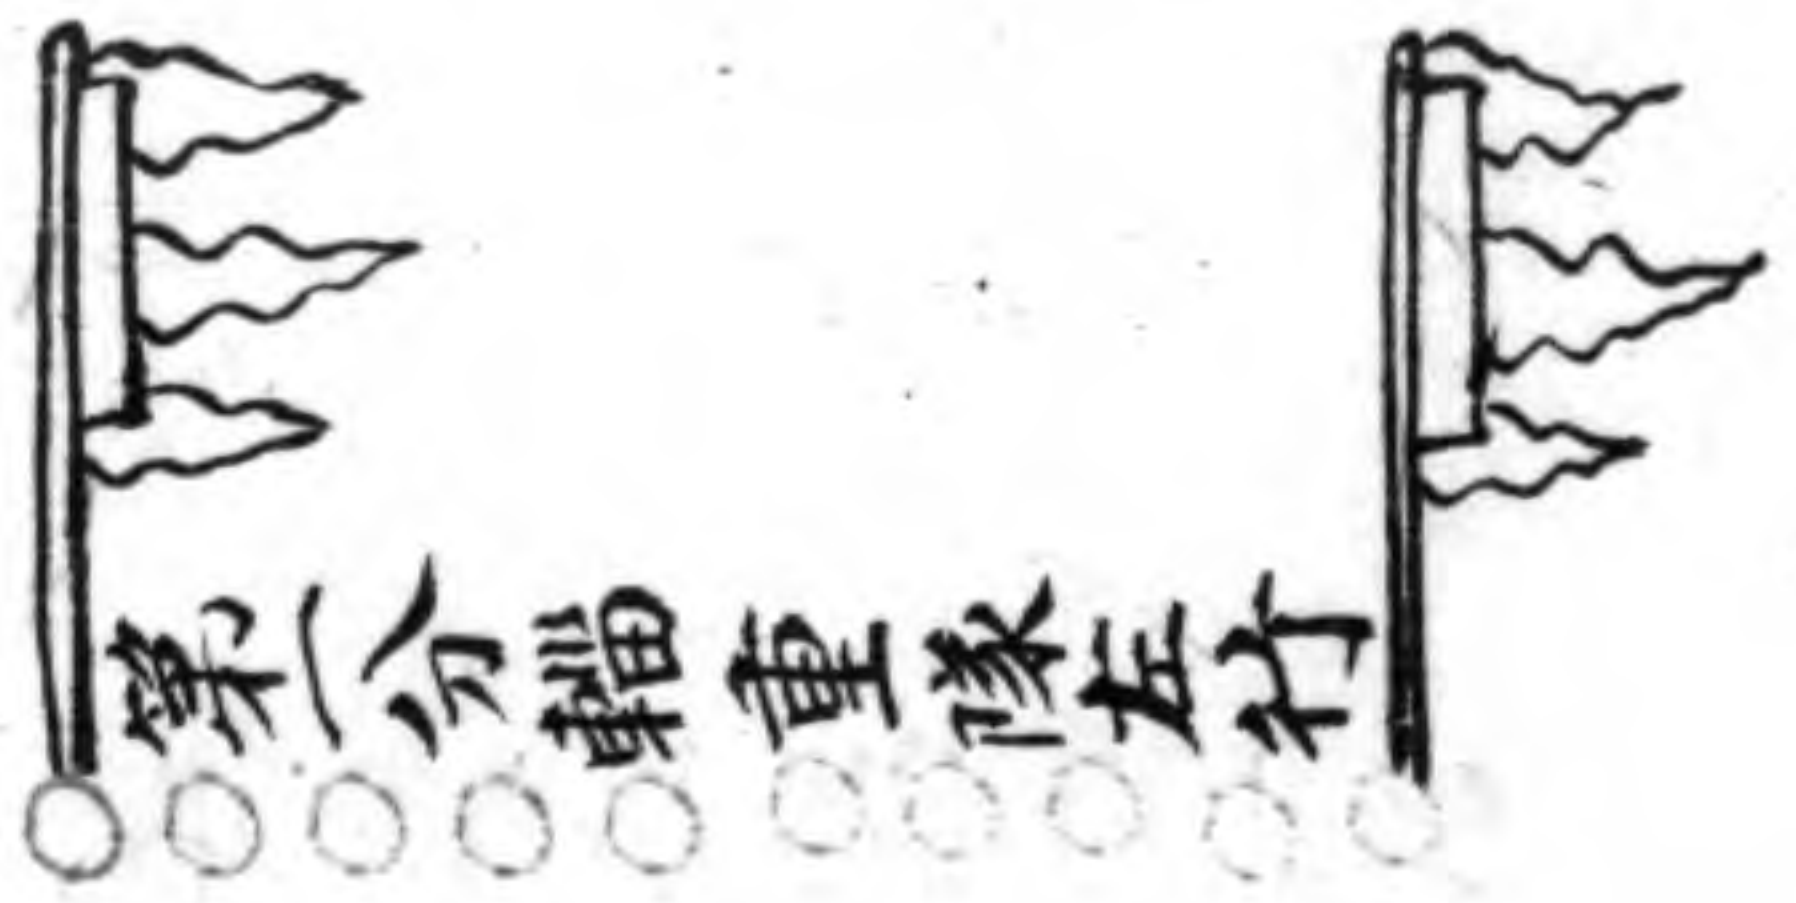 第一分輜重隊左行